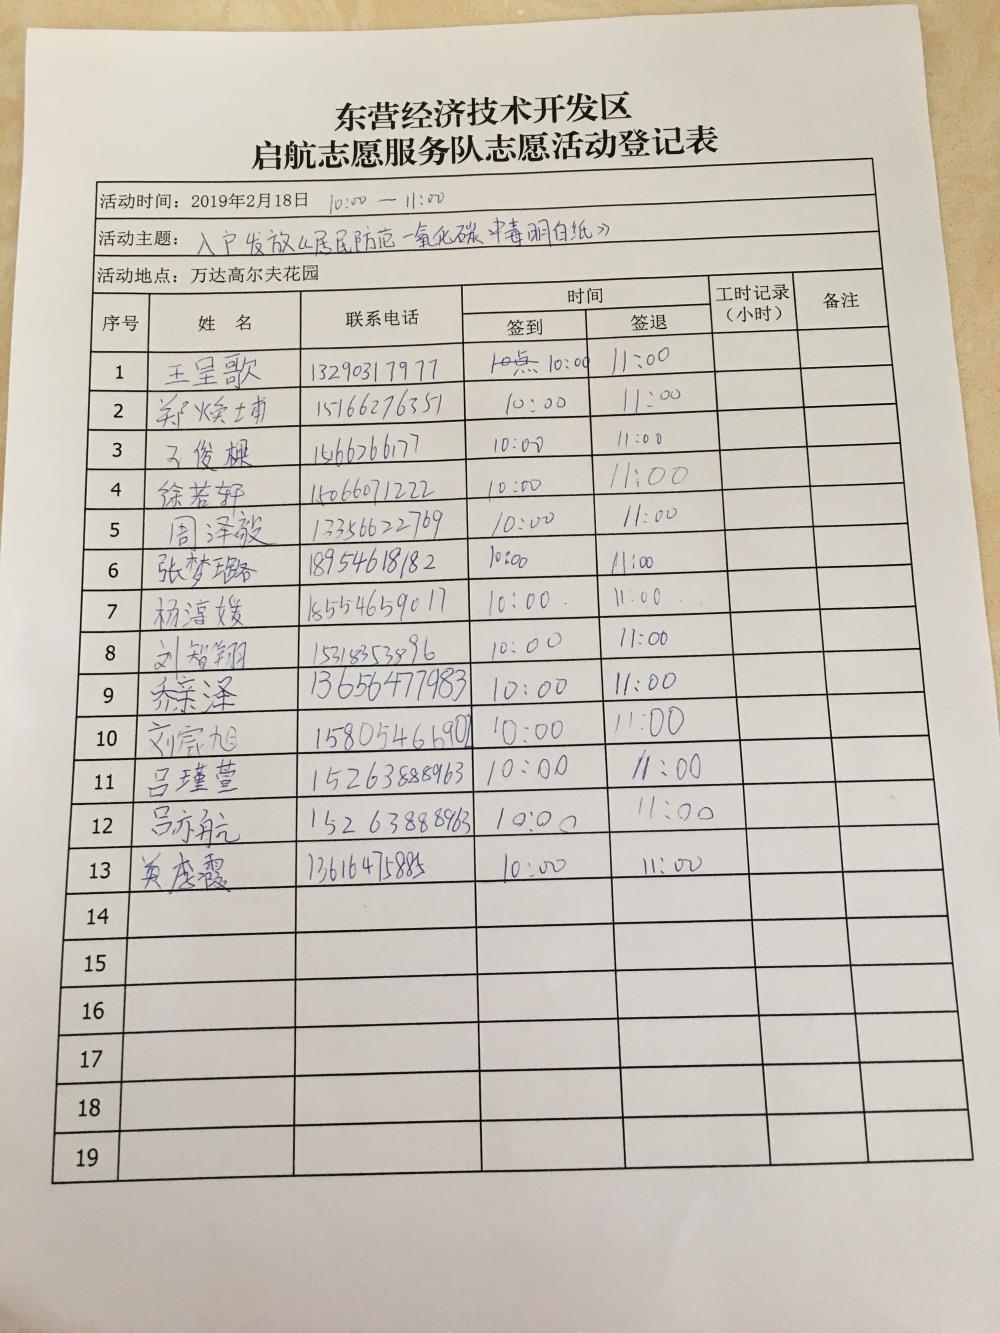 东营经济技术开发区
启航志愿服务队志愿活动登记表
活动时间：2019年2月18日 10:00 — 11:00
活动主题：入户发放《居民防范一氧化碳中毒明白纸》
活动地点：万达高尔夫花园
序号 姓 名 联系电话 时间 签到 签退 工时记录（小时） 备注
1 王呈歌 13290317977 10点 10:00 11:00
2 郑焕埔 15166276351 10:00 11:00
3 王俊樑 1566266177 10:00 11:00
4 徐若轩 15066071222 10:00 11:00
5 周泽毅 13356622769 10:00 11:00
6 张梦璐 18954618182 10:00 11:00
7 杨淳媛 18554659017 10:00 11:00
8 刘智翔 15318353896 10:00 11:00
9 乔亲泽 13656477983 10:00 11:00
10 刘宸旭 15805466902 10:00 11:00
11 吕瑾萱 15263888963 10:00 11:00
12 吕亦航 15263888963 10:00 11:00
13 13616475885 10:00 11:00
14
15
16
17
18
19